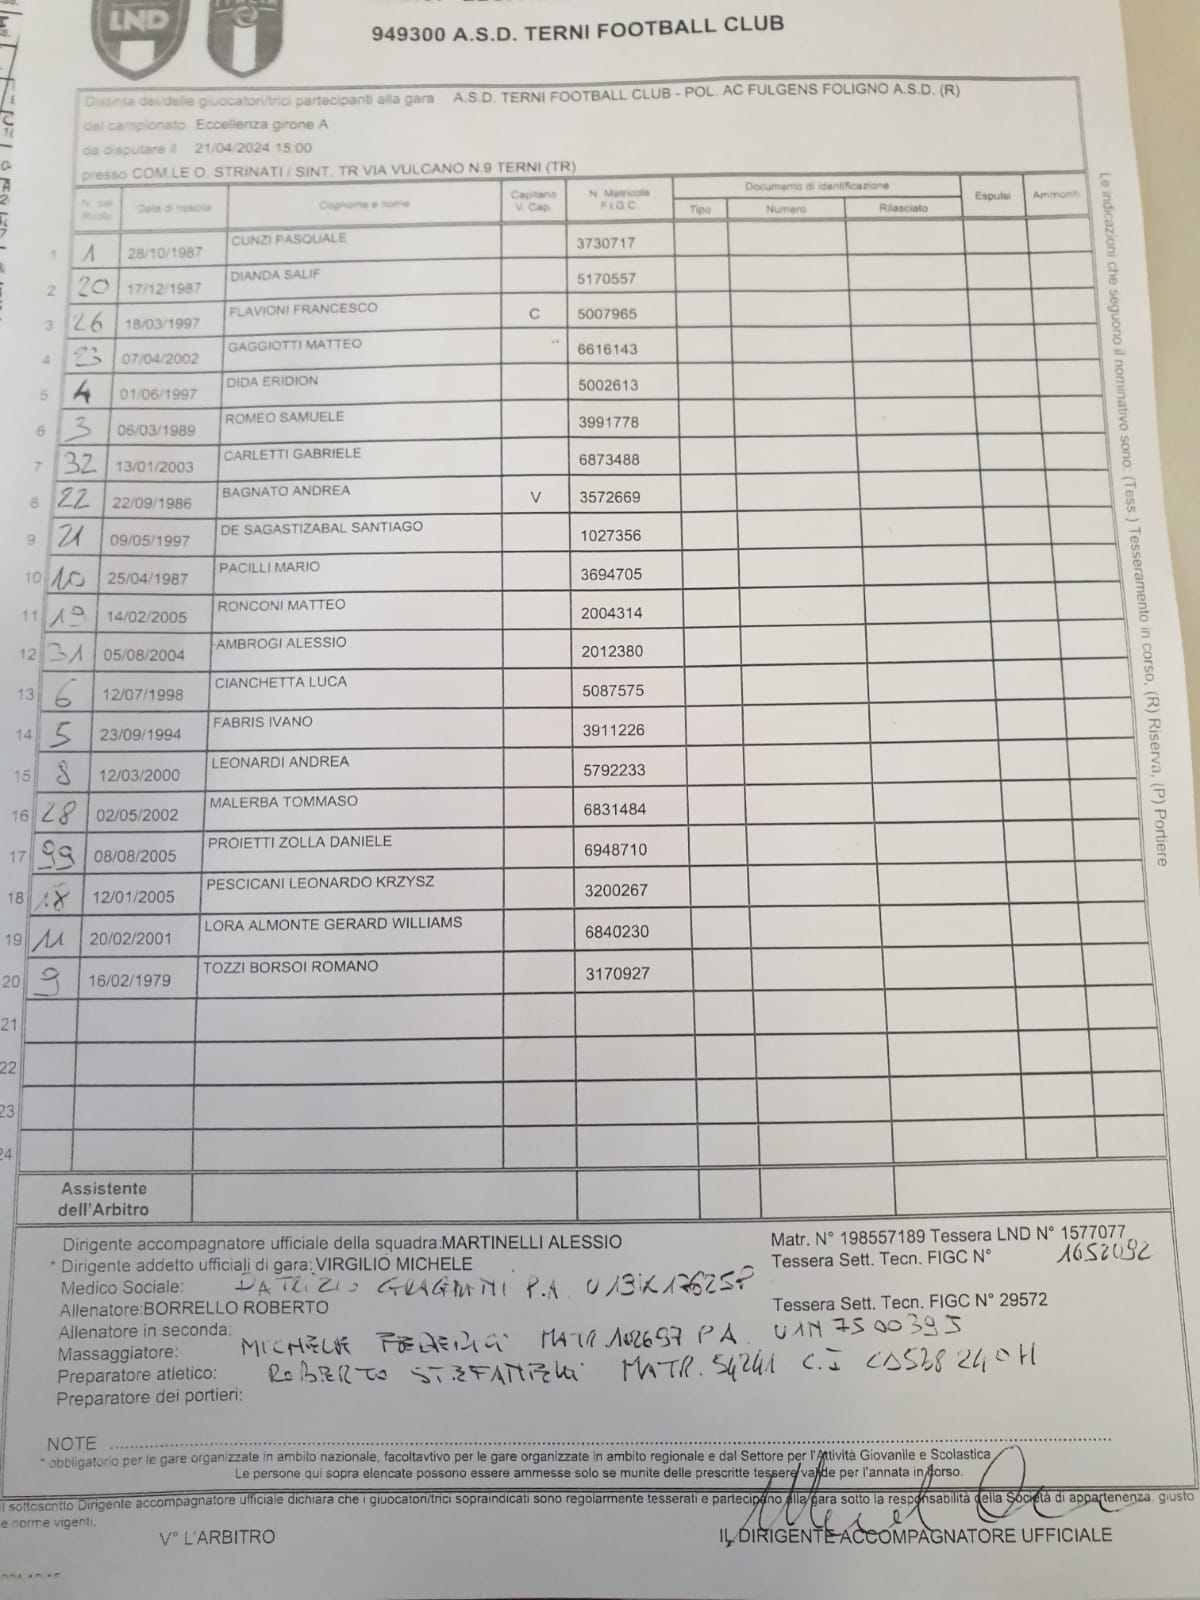 LND
949300 A.S.D. TERNI FOOTBALL CLUB
Distinta dei/delle giuocatori/trici partecipanti alla gara A.S.D. TERNI FOOTBALL CLUB - POL. AC FULGENS FOLIGNO A.S.D. (R)
del campionato Eccellenza girone A
da disputare il 21/04/2024 15:00
presso COM.LE O. STRINATI / SINT. TR VIA VULCANO N.9 TERNI (TR)
N° del Ruolo Data di nascita Cognome e nome Capitano V. Cap. N. Matricola F.I.G.C. Documento di identificazione Espulsi Ammoniti
Tipo Numero Rilasciato
1 1 28/10/1987 CUNZI PASQUALE 3730717
2 20 17/12/1987 DIANDA SALIF 5170557
3 26 18/03/1997 FLAVIONI FRANCESCO C 5007965
4 23 07/04/2002 GAGGIOTTI MATTEO 6616143
5 4 01/06/1997 DIDA ERIDION 5002613
6 3 06/03/1989 ROMEO SAMUELE 3991778
7 32 13/01/2003 CARLETTI GABRIELE 6873488
8 22 22/09/1986 BAGNATO ANDREA V 3572669
9 21 09/05/1997 DE SAGASTIZABAL SANTIAGO 1027356
10 10 25/04/1987 PACILLI MARIO 3694705
11 19 14/02/2005 RONCONI MATTEO 2004314
12 31 05/08/2004 AMBROGI ALESSIO 2012380
13 6 12/07/1998 CIANCHETTA LUCA 5087575
14 5 23/09/1994 FABRIS IVANO 3911226
15 8 12/03/2000 LEONARDI ANDREA 5792233
16 28 02/05/2002 MALERBA TOMMASO 6831484
17 99 08/08/2005 PROIETTI ZOLLA DANIELE 6948710
18 18 12/01/2005 PESCICANI LEONARDO KRZYSZ 3200267
19 11 20/02/2001 LORA ALMONTE GERARD WILLIAMS 6840230
20 9 16/02/1979 TOZZI BORSOI ROMANO 3170927
21
22
23
24
Assistente
dell'Arbitro
Dirigente accompagnatore ufficiale della squadra:MARTINELLI ALESSIO Matr. N° 198557189 Tessera LND N° 1577077
* Dirigente addetto ufficiali di gara: VIRGILIO MICHELE Tessera Sett. Tecn. FIGC N° 1652092
Medico Sociale: PATRIZIO P.A.
Allenatore:BORRELLO ROBERTO Tessera Sett. Tecn. FIGC N° 29572
Allenatore in seconda:
Massaggiatore: MICHELE FEDERICI MATR. 102657 P A. U1N7500395
Preparatore atletico: ROBERTO STEFANELLI MATR. 54241 C.I
Preparatore dei portieri:
NOTE
* obbligatorio per le gare organizzate in ambito nazionale, facoltavtivo per le gare organizzate in ambito regionale e dal Settore per l'Attività Giovanile e Scolastica
Le persone qui sopra elencate possono essere ammesse solo se munite delle prescritte tessere valide per l'annata in corso.
Il sottoscritto Dirigente accompagnatore ufficiale dichiara che i giuocatori/trici sopraindicati sono regolarmente tesserati e partecipano alla gara sotto la responsabilità della Società di appartenenza, giusto
e norme vigenti.
V° L'ARBITRO IL DIRIGENTE ACCOMPAGNATORE UFFICIALE
Le indicazioni che seguono il nominativo sono: (Tess.) Tesseramento in corso, (R) Riserva, (P) Portiere